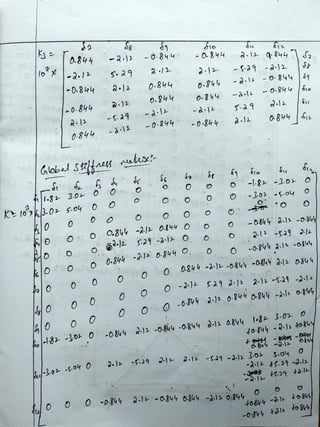 δ7 δ8 δ9 δ10 δ11 δ12
K3 = 0.844 -2.12 -0.844 -0.844 2.12 0.844 δ7
10⁷ × -2.12 5.29 2.12 2.12 -5.29 -2.12 δ8
-0.844 2.12 0.844 0.844 -2.12 -0.844 δ9
-0.844 2.12 0.844 0.844 -2.12 -0.844 δ10
2.12 -5.29 -2.12 -2.12 5.29 2.12 δ11
0.844 -2.12 -0.844 -0.844 2.12 0.844 δ12
Global Stiffness matrix:-
δ1 δ2 δ3 δ4 δ5 δ6 δ7 δ8 δ9 δ10 δ11 δ12
δ1 1.82 3.02 0 0 0 0 0 0 0 -1.82 -3.02 0
K = 10⁷ × 3.02 5.04 0 0 0 0 0 0 0 -3.02 -5.04 0
0 0 0 0 0 0 0 0 0 0 0
0 0 0 0.844 -2.12 0.844 0 0 0 -0.844 2.12 -0.844
0 0 0 -2.12 5.29 -2.12 0 0 0 2.12 -5.29 2.12
0 0 0 0.844 -2.12 0.844 0 0 0 -0.844 2.12 -0.844
0 0 0 0 0 0 0.844 -2.12 -0.844 -0.844 2.12 0.844
0 0 0 0 0 0 -2.12 5.29 2.12 2.12 -5.29 -2.12
0 0 0 0 0 0 -0.844 2.12 0.844 0.844 -2.12 -0.844
-1.82 -3.02 0 -0.844 2.12 -0.844 -0.844 2.12 0.844 1.82 3.02 0
+0.844 -2.12 +0.844
0.844 -2.12 -0.844
-3.02 -5.04 0 2.12 -5.29 2.12 2.12 -5.29 -2.12 3.02 5.04 0
-2.12 +5.29 -2.12
-2.12 +5.29 +2.12
0 0 0 -0.844 2.12 -0.844 0.844 -2.12 -0.844 0 0 0
+0.844 -2.12 +0.844
-0.844 +2.12 +0.844